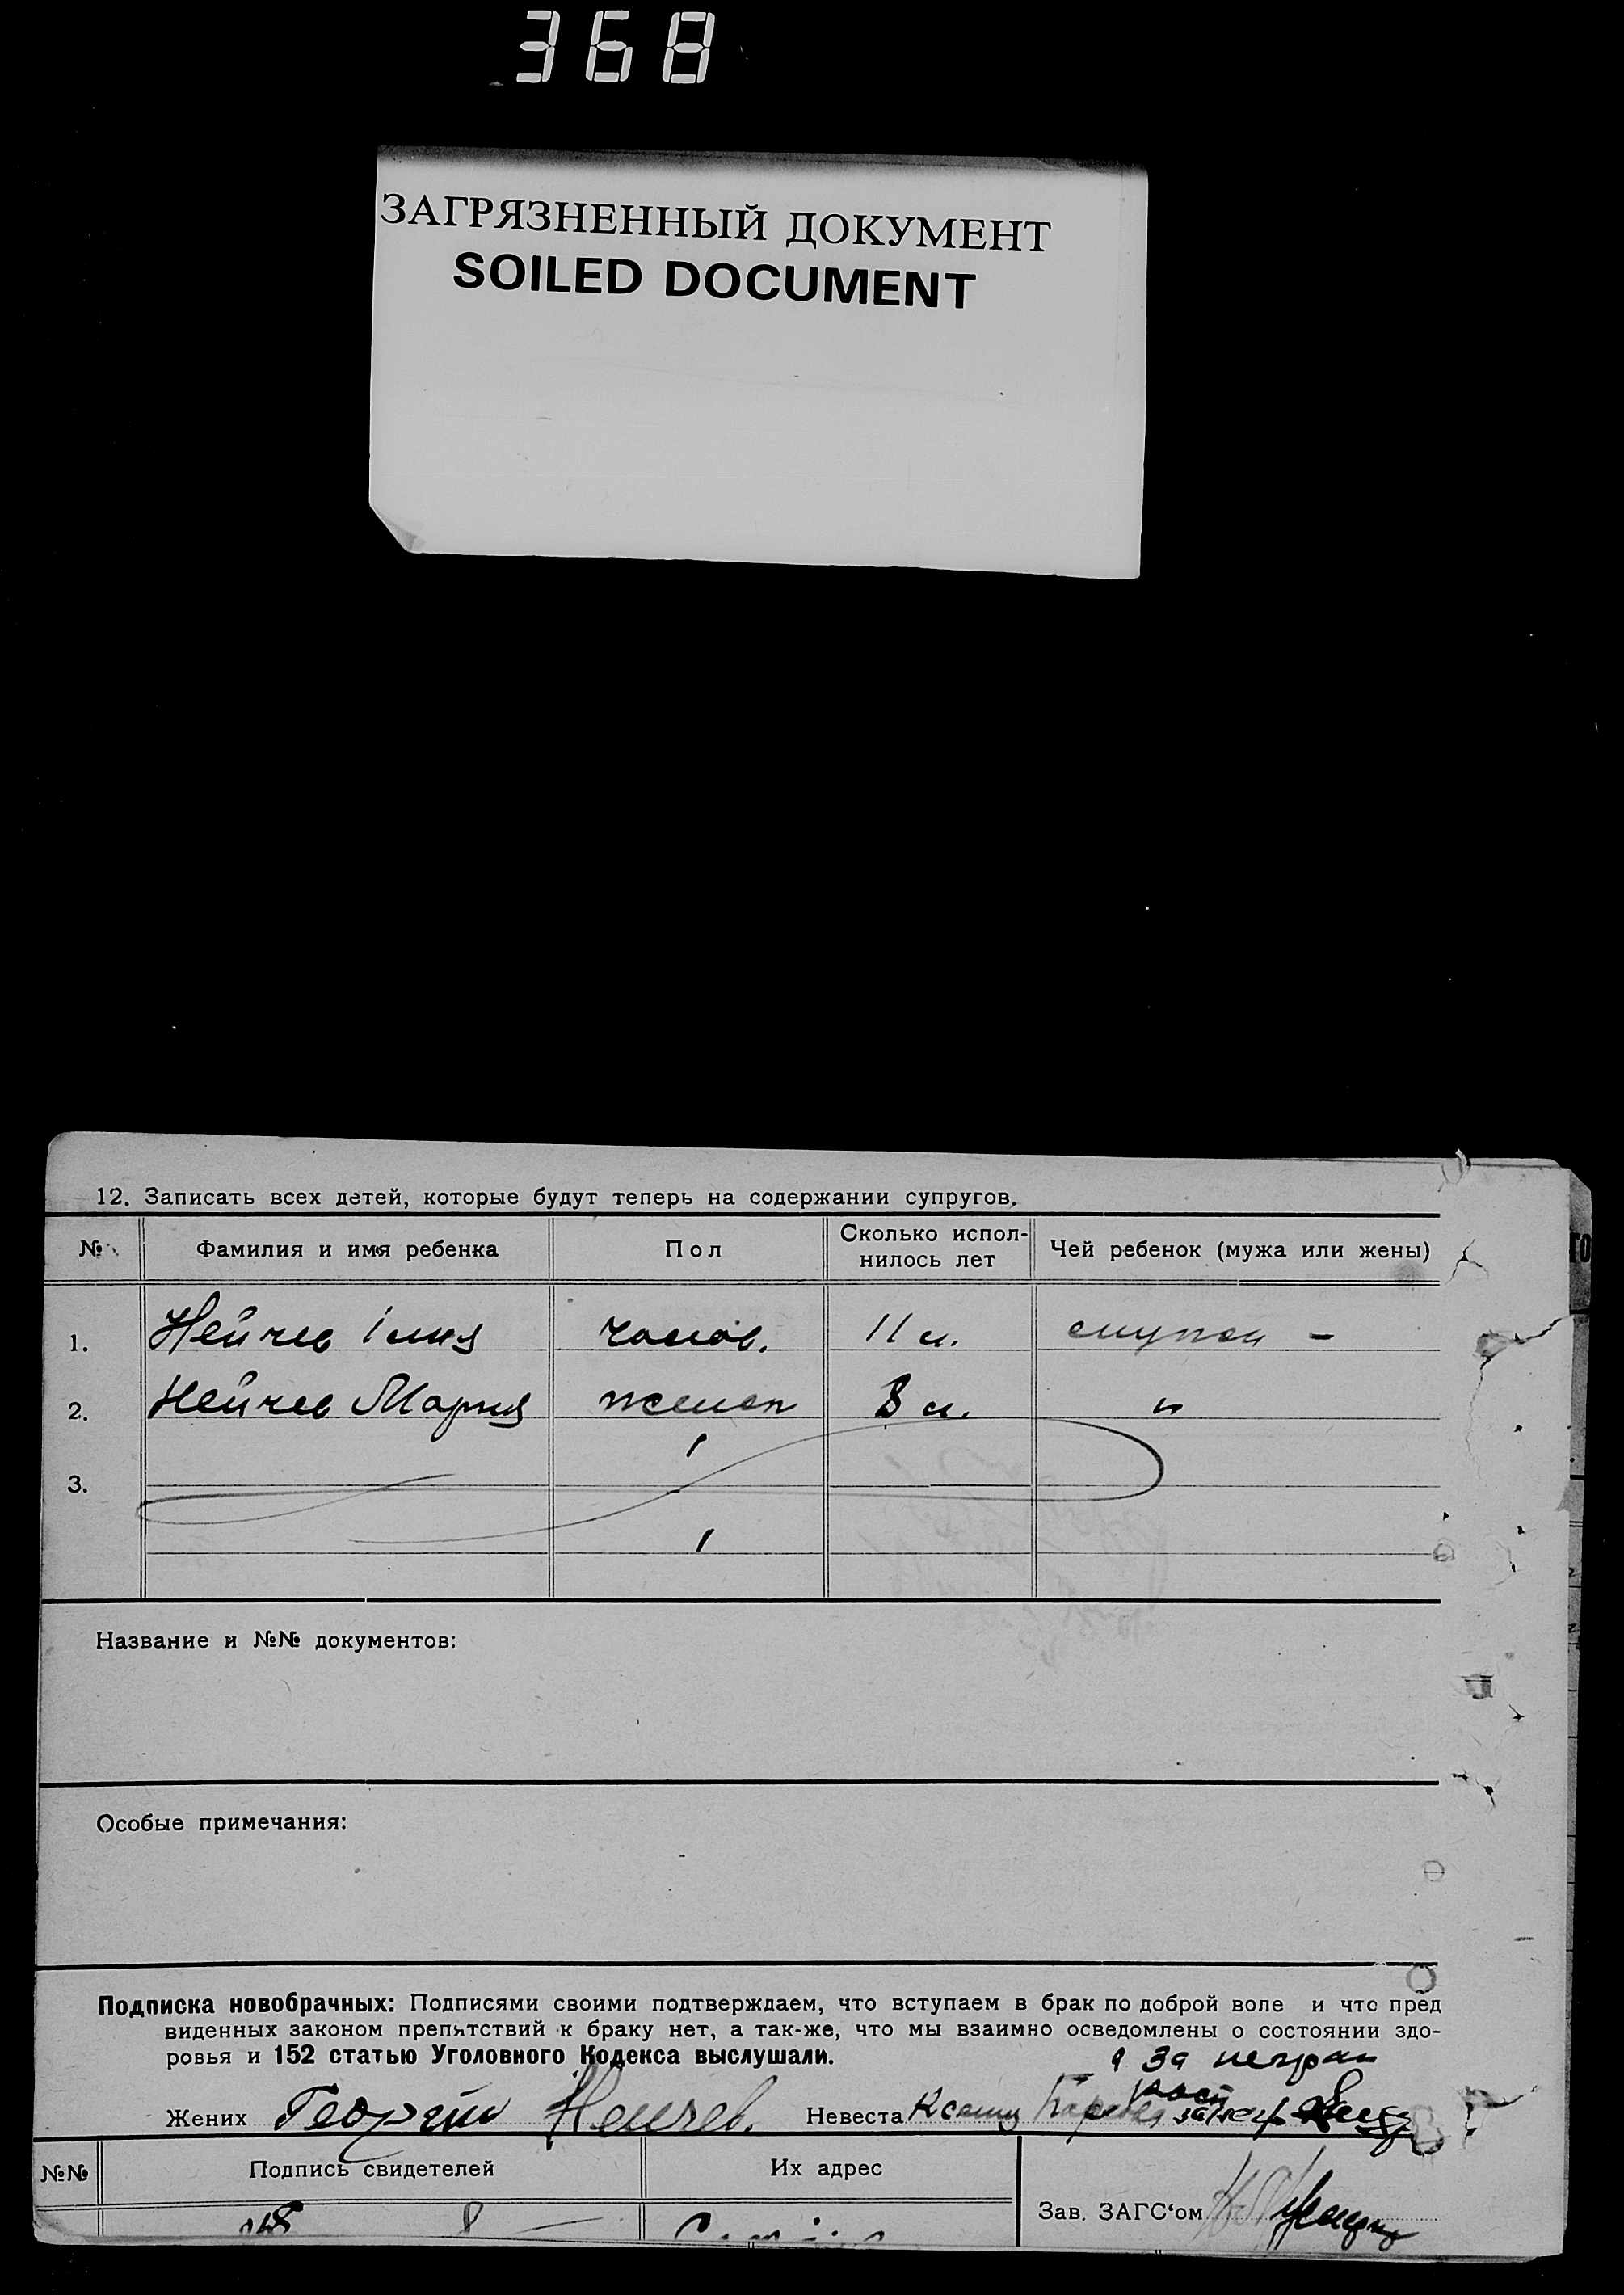 368
ЗАГРЯЗНЕННЫЙ ДОКУМЕНТ
SOILED DOCUMENT
12. Записать всех детей, которые будут теперь на содержании супругов.
№ Фамилия и имя ребенка Пол Сколько испол- Чей ребенок (мужа или жены)
нилось лет
1. Нейчев Iлия 11 л.
2. Нейчев Мария женск 8 л. "
3.
Название и №№ документов:
Особые примечания:
Подписка новобрачных: Подписями своими подтверждаем, что вступаем в брак по доброй воле и что пред
виденных законом препятствий к браку нет, а так-же, что мы взаимно осведомлены о состоянии здо-
ровья и 152 статью Уголовного Кодекса выслушали.
за неграм
Жених Георгий Нейчев. Невеста
№№ Подпись свидетелей Их адрес
Зав. ЗАГС'ом